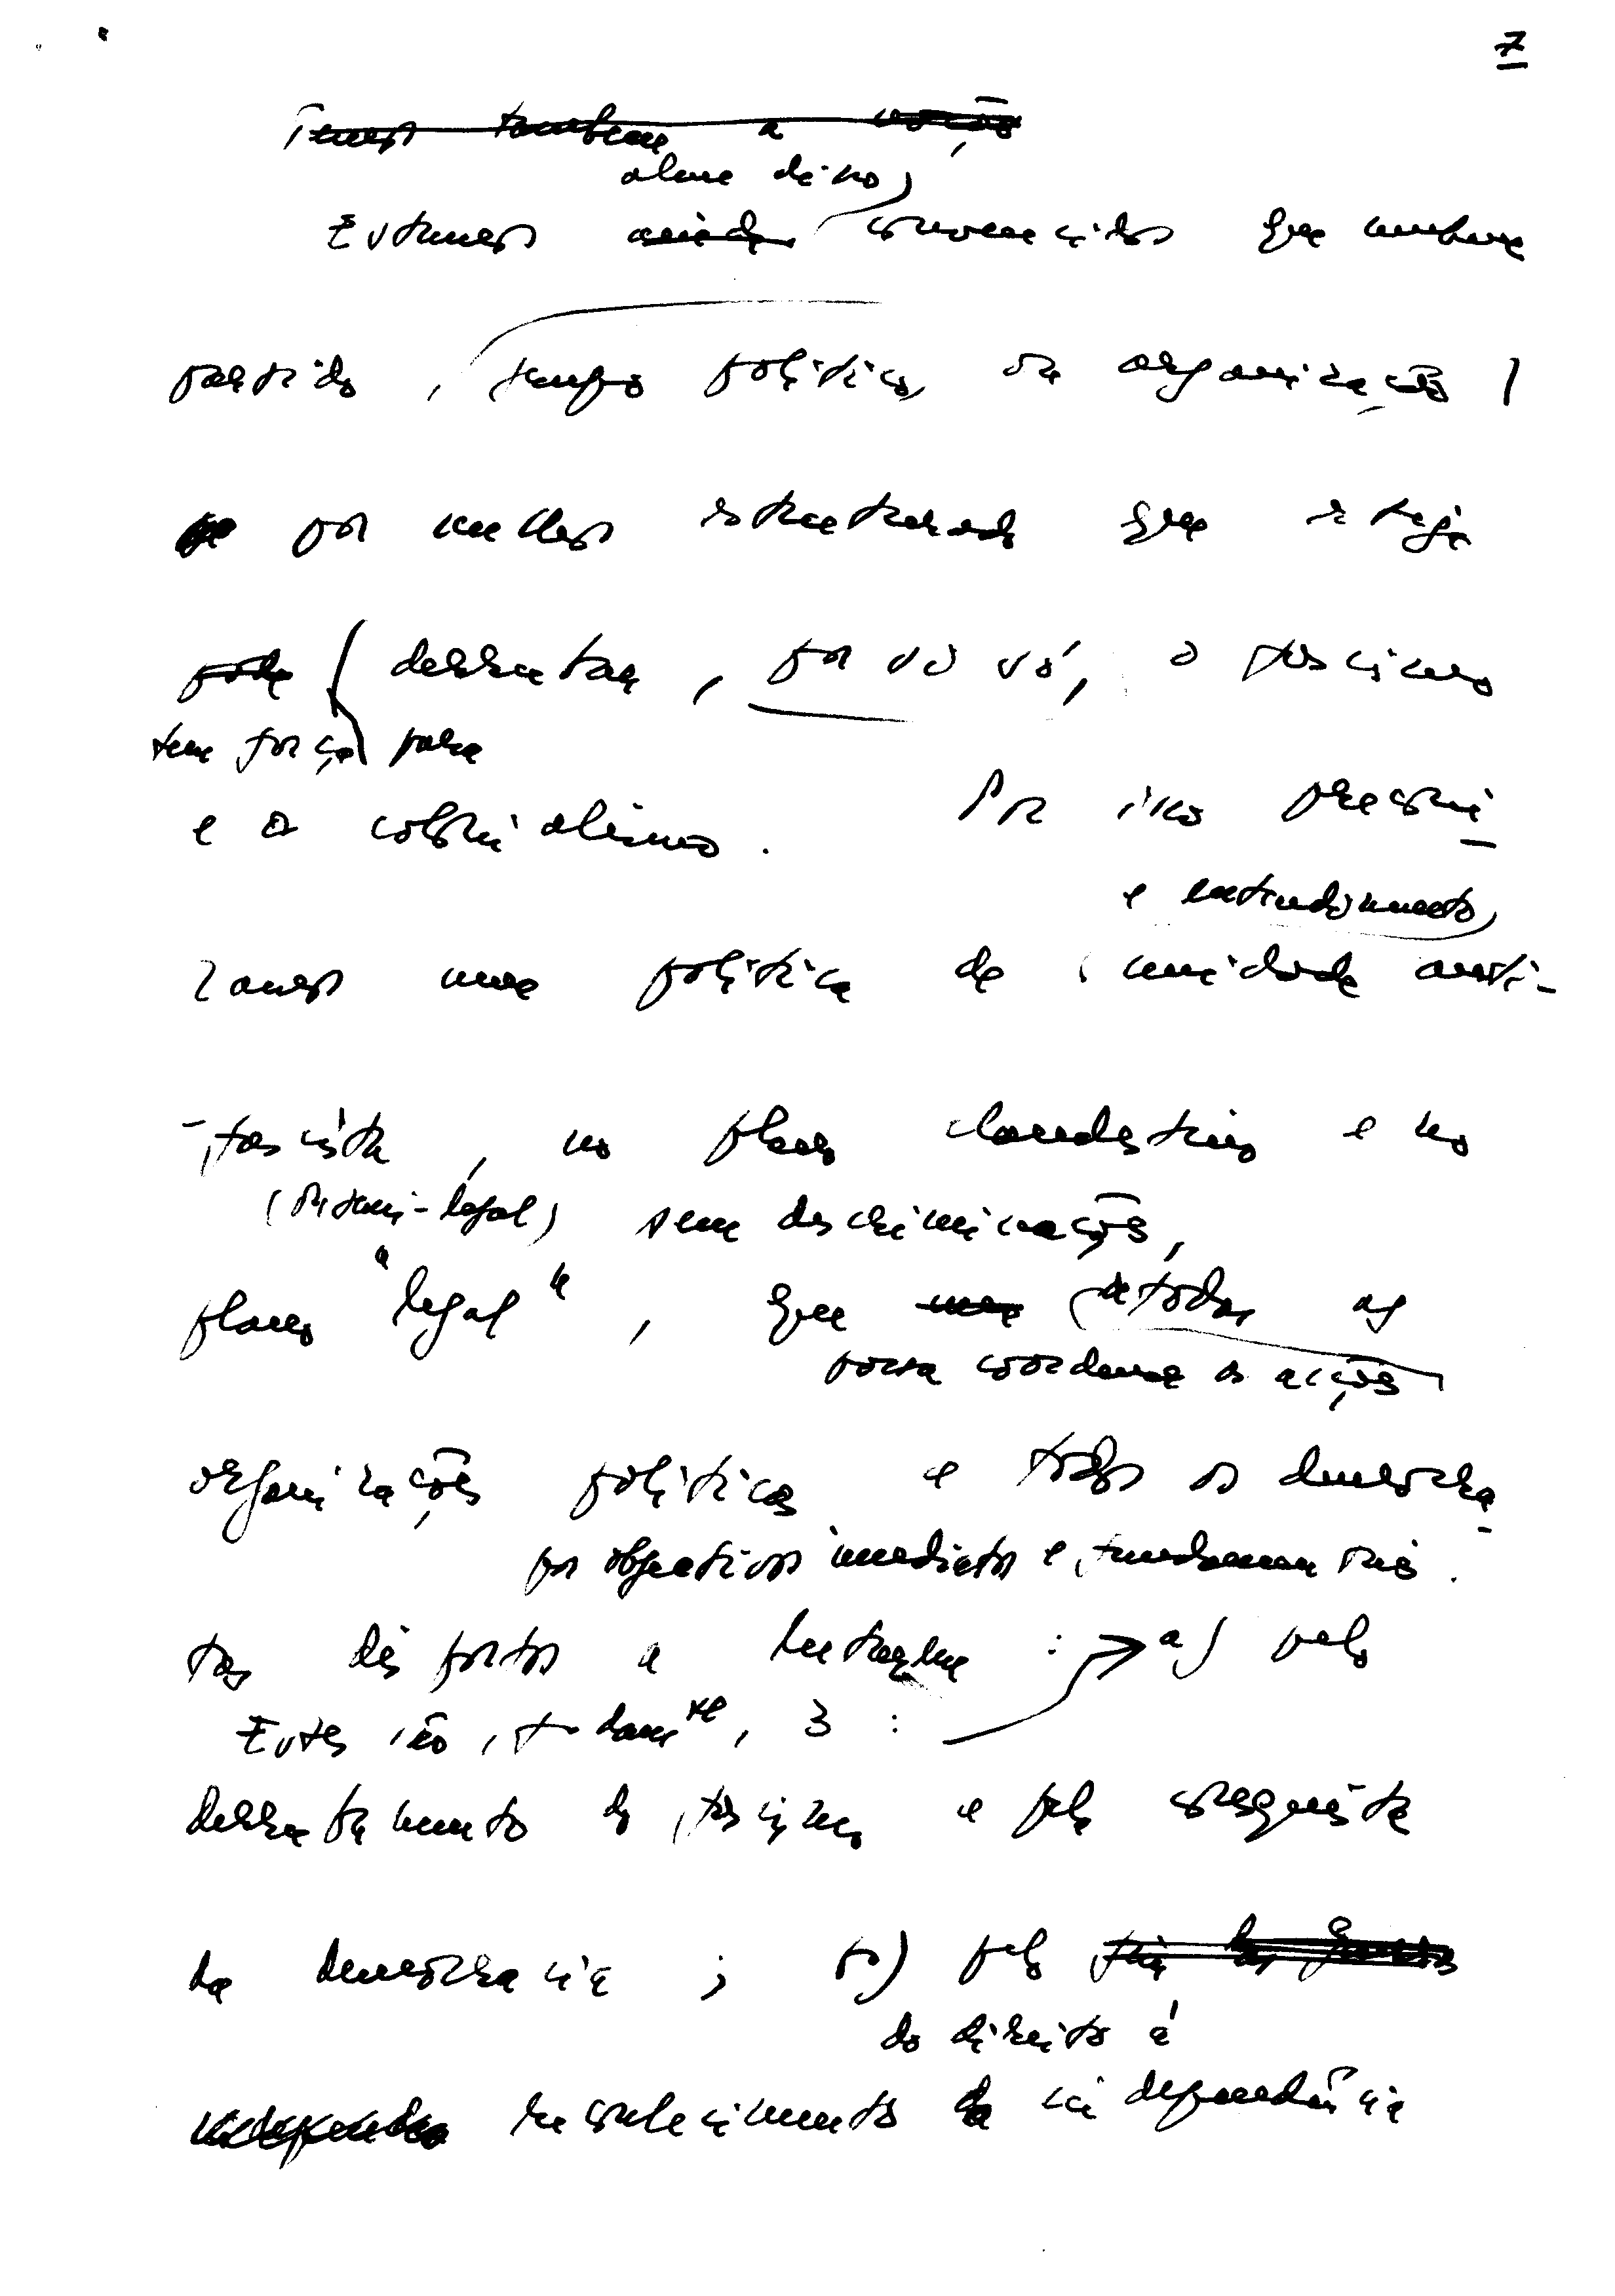 7
Temos também a noção
alem disso,
Estamos ainda convencidos que nenhum
partido, grupo político, ou organização,
por melhor estruturada que esteja
pode derrotar, por si só, o fascismo
tem força para
e o colonialismo. Por isso preconi-
e entendimento,
zamos uma política de unidade anti-
-fascista, no plano clandestino e no
(ou semi-legal) sem descriminações,
plano "legal", que una a todas as
possa coordenar as acções
organizações políticas e todos os democra-
por objectivos imediatos e fundamentais.
tas dispostos a lutarem : a) pelo
Estes são, fundam.te, 3 :
derrubamento do fascismo e pela conquista
da democracia ; b) pelo fim da guerra
do direito á
reconhecimento da independência